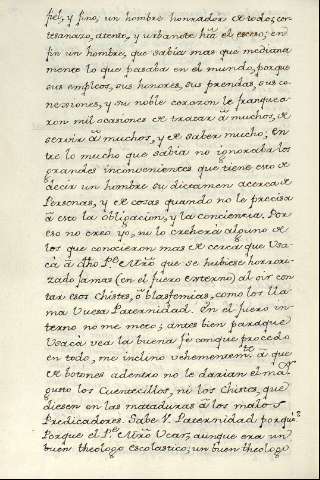 fiel, y fino, un hombre honrador de todos, cor-
tesanazo, atento, y urbanote hta el exceso; en
fin un hombre, que sabia mas que mediana
mente lo que pasaba en el mundo, porque
sus empleos, sus honores, sus prendas, sus co-
nexiones, y su noble corazon le franquea-
ron mil ocasiones de tratar â muchos, de
servir â muchos, y de saber mucho; en
tre lo mucho que sabia no ignoraba los
grandes inconvenientes que tiene esto de
decir un hombre su dictamen acerca de
Personas, y de cosas quando no le precisa
â esto la obligacion, y la conciencia. Por
eso no creo yo, ni lo creherá alguno de
los que conocieron mas de cerca que Usa-
cá â dho Pe. Mtro que se hubiese horrori-
zado jamas (en el fuero externo) al oir con
tar esos chistes, ô blasfemias, como los lla
ma Vuesa Paternidad. En el fuero in-
terno no me meto; antes bien paraque
Usacá vea la buena fe conque procedo
en todo, me inclino vehementemte. â que
de botones adentro no le darian el maor
gusto los Cuentecillos, ni los Chistes, que
diesen en las mataduras â los malos
Predicadores. Sabe V. Paternidad porque?
Porque el Pe. Mtro Ucar, aunque era un
buen theologo escolastico; un buen theologo